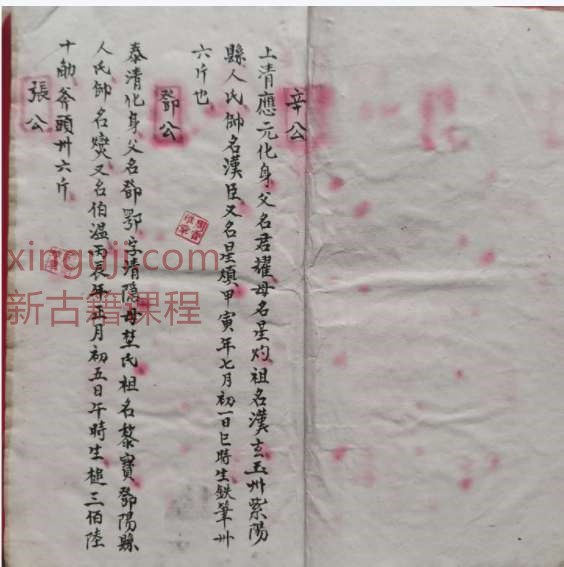 辛公
上清應元化身父名君耀母名星灼祖名漢玄玉州紫陽
縣人氏帥名漢臣又名星煩甲寅年七月初一日巳時生鉄筆卅
六斤也
鄧公
泰清化身父名鄧鄂字清隱母埜氏祖名黎寶鄧陽縣
人氏帥名燮又名伯温丙辰年正月初五日午時生槌三佰陸
十觔斧頭卅六斤
張公
xinguji.com
新古籍课程